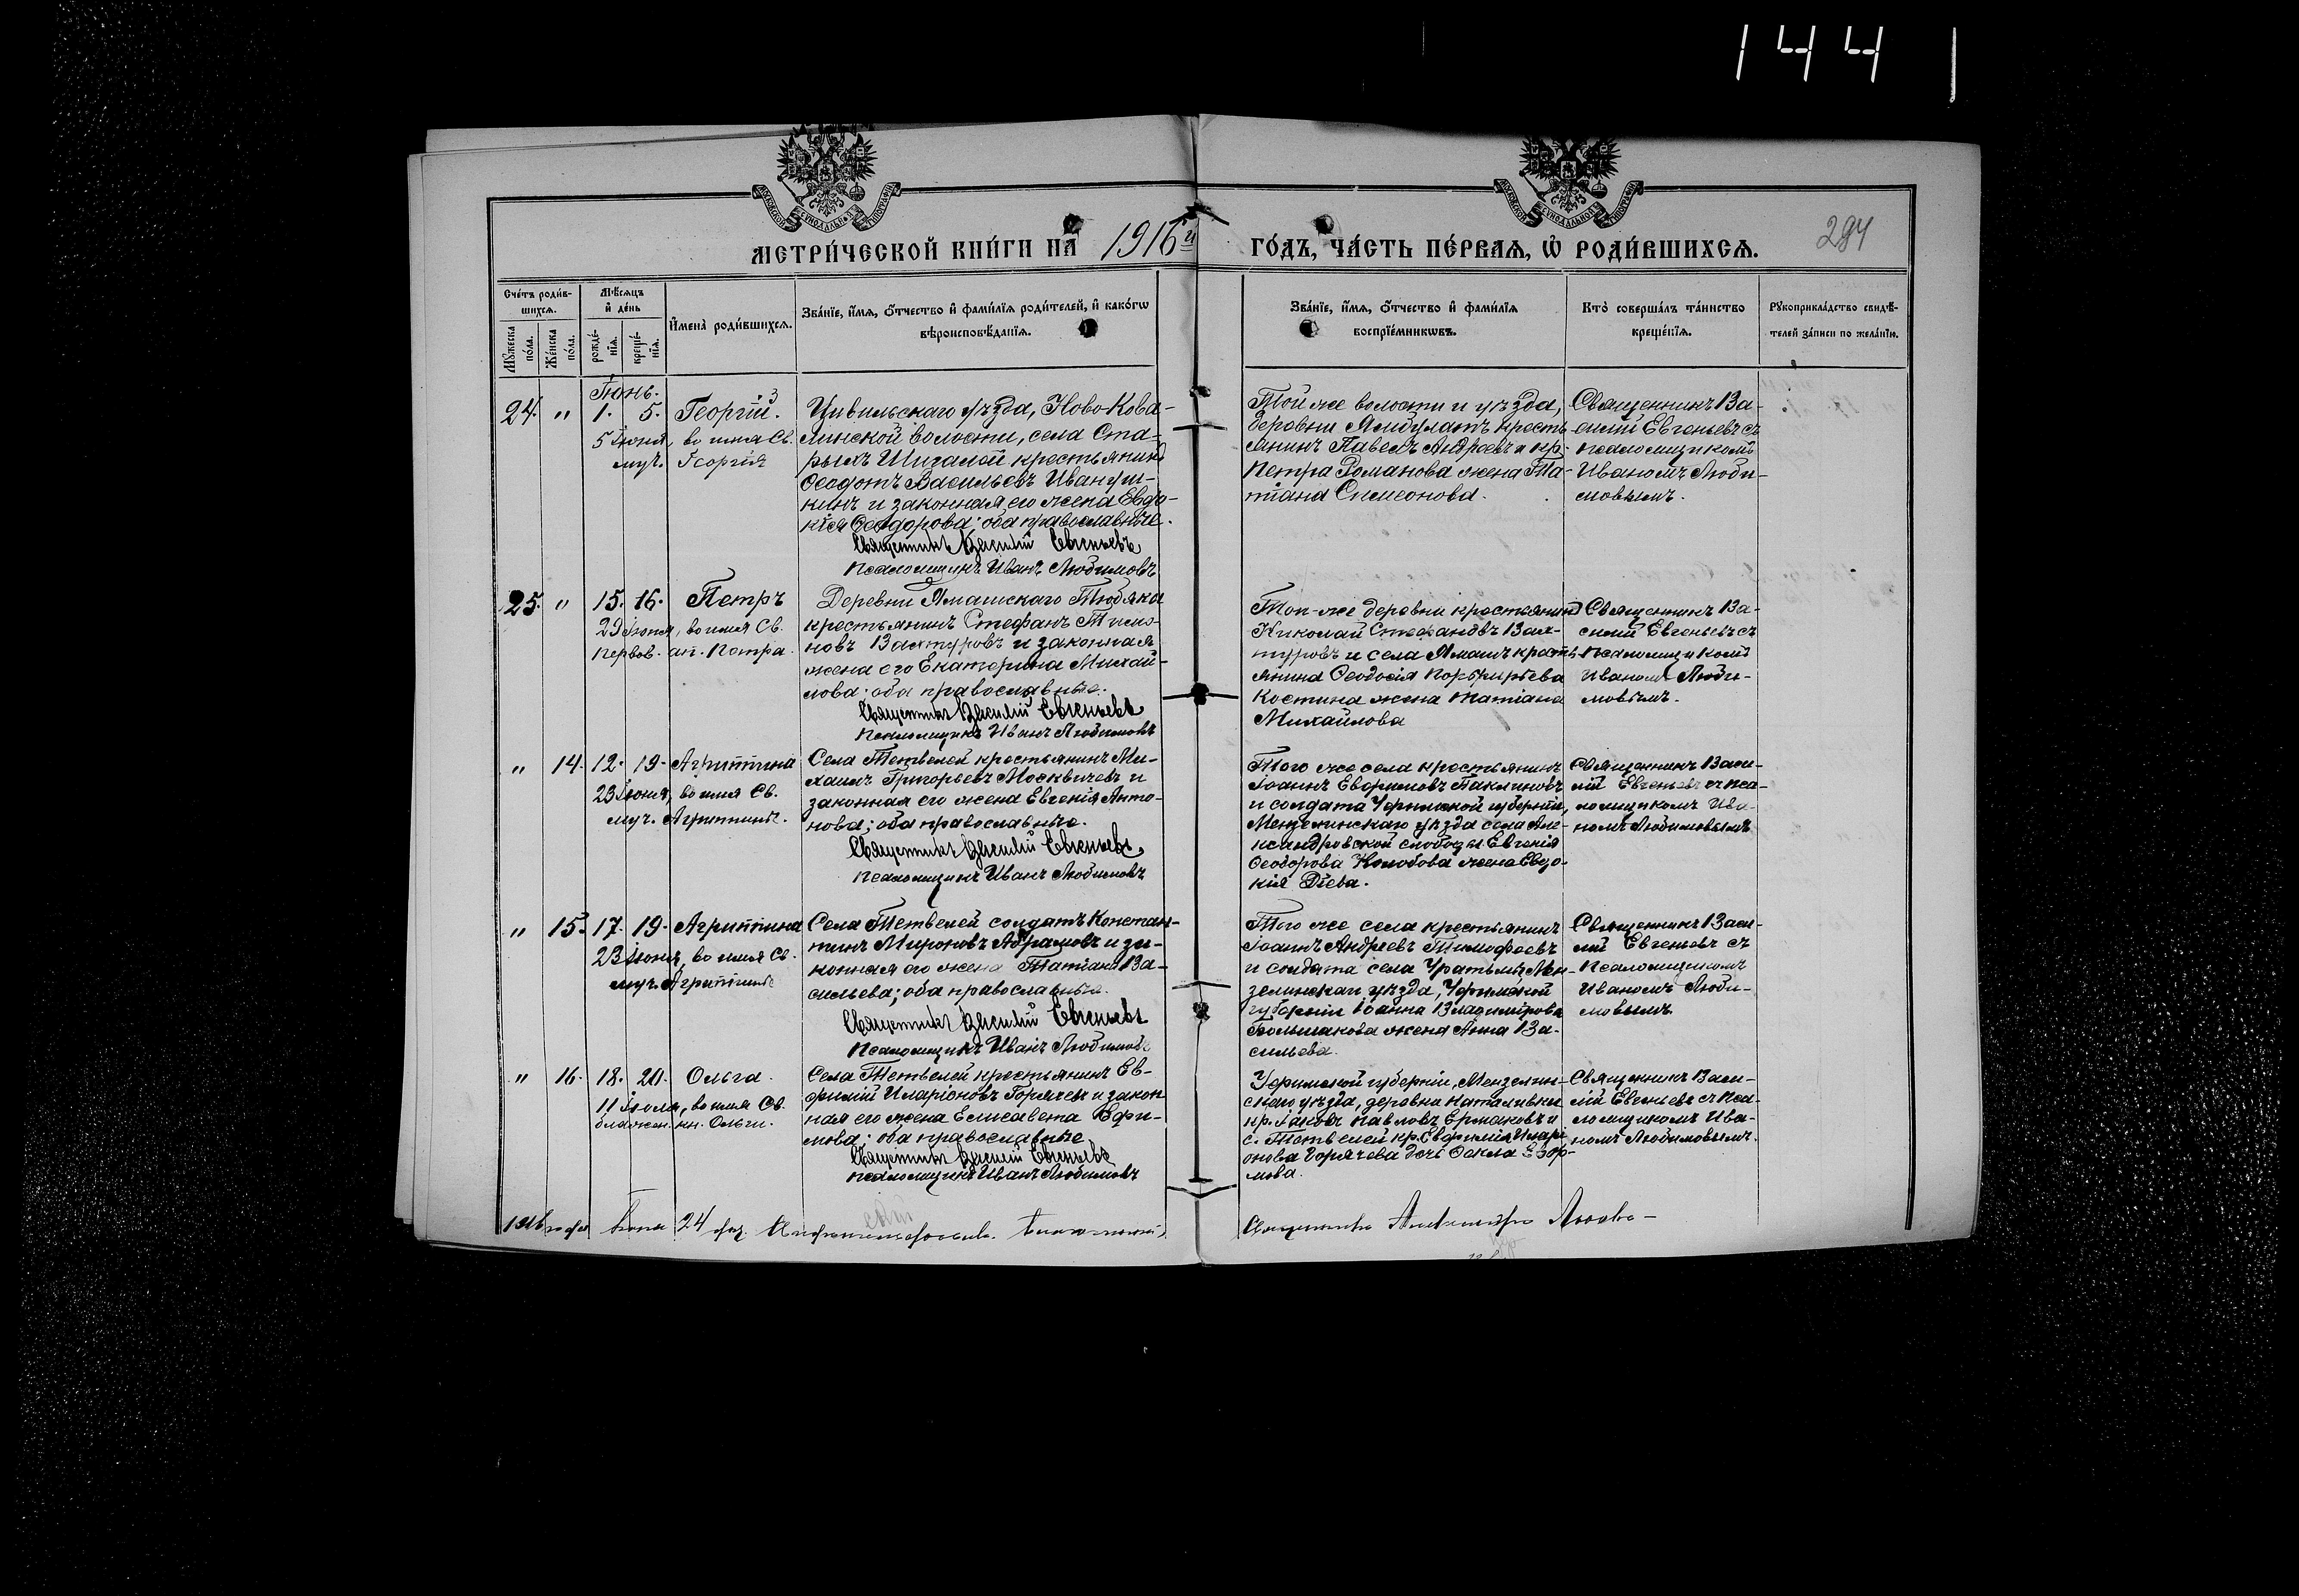 144
МЕТРИ́ЧЕСКОЙ КНИ́ГИ НА 1916й ГО́ДЪ, ЧА́СТЬ ПЕ́РВАѦ, Ѡ РОДИ́ВШИХСѦ.
294
Сче́тъ роди́в-
шихсѧ.
Мꙋ́жеска
по́ла.
Же́нска
по́ла.
Мѣ́сѧцъ
и҆ де́нь
рожде́-
нїѧ.
креще́-
нїѧ.
И҆мена̀ роди́вшихсѧ.
Зва́нїе, и҆́мѧ, ѻ҆́тчество и҆ фами́лїѧ роди́телей, и҆ како́гѡ
вѣроисповѣ́данїѧ.
Зва́нїе, и҆́мѧ, ѻ҆́тчество и҆ фами́лїѧ
воспрїе́мникѡвъ.
Кто̀ соверша́лъ та́инство
креще́нїѧ.
Рꙋкоприкла́дство свидѣ́-
телей за́писи по жела́нїю.
Іюнь.
24. " 1. 5. Георгій.
5 Іюня, во имя Св.
муч. Георгія
Цивильскаго уѣзда, Ново-Кова-
линской волости, села Ста-
рыхъ Шигалей крестьянинъ
Ѳеодотъ Васильевъ Ивануш-
кинъ и законная его жена Евдо-
кія Ѳеодорова; оба православные.
Священникъ Василій Евгеньевъ
Псаломщикъ Иванъ Любимовъ
Той же волости и уѣзда,
деревни Ямбулатъ кресть-
янинъ Павелъ Андреевъ и кр.
Петра Романова жена Та-
тіана Симеонова.
Священникъ Ва-
силій Евгеньевъ съ
псаломщикомъ
Иваномъ Люби-
мовымъ.
25. " 15. 16. Петръ
29 Іюня, во имя Св.
первов. ап. Петра.
Деревни Ямашскаго Тюбяка
крестьянинъ Стефанъ Тимо-
новъ Вахтуровъ и законная
жена его Екатерина Михай-
лова; оба православные.
Священникъ Василій Евгеньевъ
Псаломщикъ Иванъ Любимовъ
Той-же деревни крестьянинъ
Николай Стефановъ Вах-
туровъ и села Ямашъ кресть-
янина Ѳеодосія Порфирьева
Костина жена Татіана
Михайлова
Священникъ Ва-
силій Евгеньевъ съ
псаломщикомъ
Иваномъ Люби-
мовымъ.
" 14. 12. 19. Агриппина
23 Іюня, во имя Св.
муч. Агриппины.
Села Тетвелей крестьянинъ Ми-
хаилъ Григорьевъ Москвичевъ и
законная его жена Евгенія Анто-
нова; оба православные.
Священникъ Василій Евгеньевъ
Псаломщикъ Иванъ Любимовъ
Того же села крестьянинъ
Іоаннъ Евфимовъ Паклиновъ
и солдата Уфимской губерніи,
Мензелинскаго уѣзда села Але-
ксандровской слободы Евгенія
Ѳеодорова Колобова жена Евдо-
кія Діева.
Священникъ Васи-
лій Евгеньевъ съ пса-
ломщикомъ Ива-
номъ Любимовымъ
" 15. 17. 19. Агриппина
23 Іюня, во имя Св.
муч. Агриппины
Села Тетвелей солдатъ Констан-
тинъ Мироновъ Абрамовъ и за-
конная его жена Татіана Ва-
сильева; оба православные.
Священникъ Василій Евгеньевъ
Псаломщикъ Иванъ Любимовъ
Того же села крестьянинъ
Іоаннъ Андреевъ Тимофеевъ
и солдата села Уратьмы, Мен-
зелинскаго уѣзда, Уфимской
губерніи Іоанна Владимірова
Большакова жена Анна Ва-
сильева.
Священникъ Васи-
лій Евгеньевъ съ
псаломщикомъ
Иваномъ Люби-
мовымъ
" 16. 18. 20. Ольга.
11 Іюля, во имя Св.
блажен. кн. Ольги.
Села Тетвелей крестьянинъ Ев-
фимій Иларіоновъ Горячевъ и закон
ная его жена Елисавета Ефи-
мова; оба православные
Священникъ Василій Евгеньевъ
Псаломщикъ Иванъ Любимовъ
Уфимской губерніи, Мензелин-
скаго уѣзда, деревни Наталевки
кр. Іаковъ Павловъ Ермаковъ и
с. Тетвелей кр. Евфимія Илари
онова Горячева дочь Ѳекла Евфи-
мова.
Священникъ Васи-
лій Евгеньевъ съ пса-
ломщикомъ Ива-
номъ Любимовымъ.
1916 года Іюня 24 дня
Священникъ